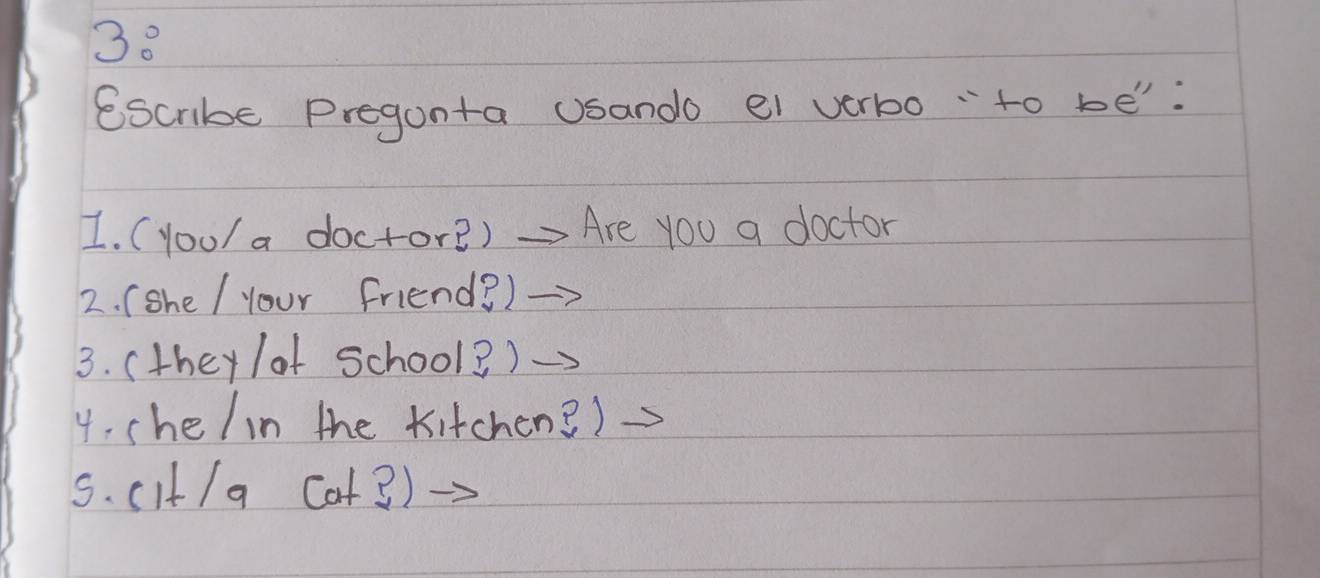 3:
Escribe Pregunta usando el verbo "to be":
1. (you/a doctor?) → Are you a doctor
2. (She/your friend?) →
3. (they/at school?) →
4. (he/in the kitchen?) →
5. (it/a cat?) →